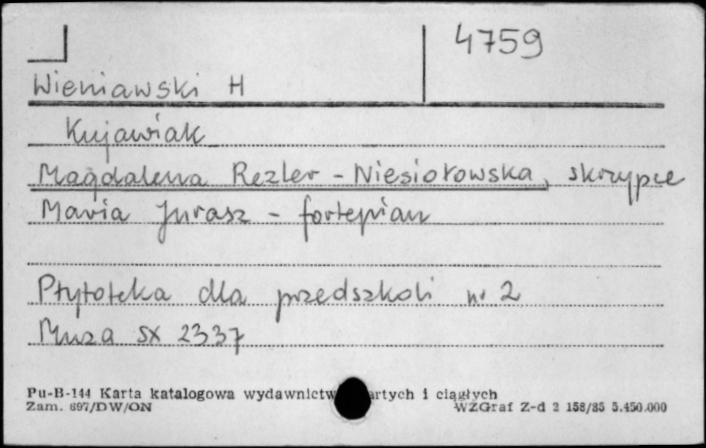 4759
Wieniawski H
Kujawiak
Magdalena Rezler - Niesiołowska, skrzypce
Maria Jurasz - fortepian
Płytoteka dla przedszkoli nr 2
Muza SX 2337
Pu-B-144 Karta katalogowa wydawnictw artych i ciągłych
Zam. 697/DW/ON WZGraf Z-d 2 158/85 5.450.000